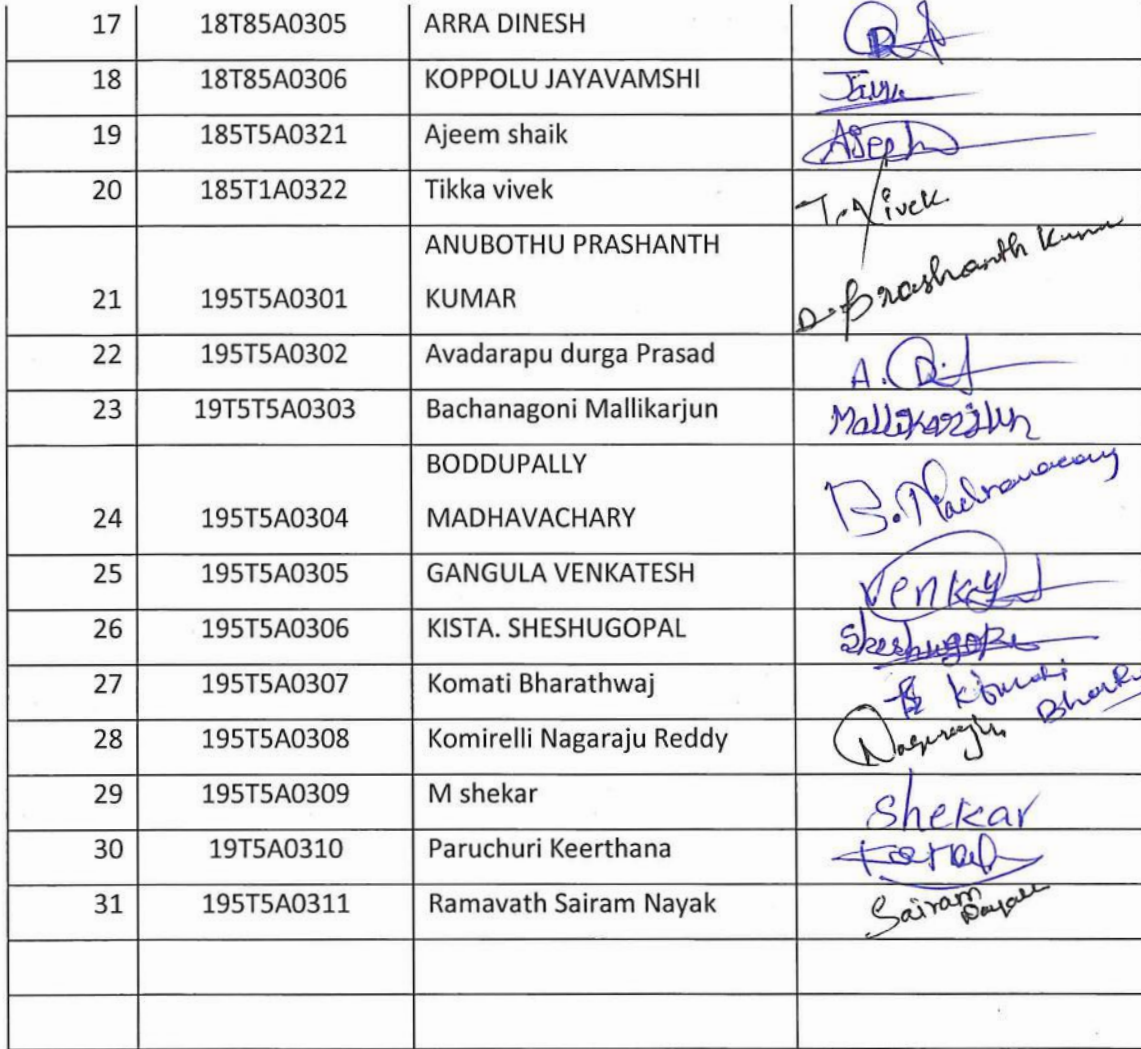 17 18T85A0305 ARRA DINESH
18 18T85A0306 KOPPOLU JAYAVAMSHI
19 185T5A0321 Ajeem shaik
20 185T1A0322 Tikka vivek T. Vivek
ANUBOTHU PRASHANTH
21 195T5A0301 KUMAR Prashanth Kumar
22 195T5A0302 Avadarapu durga Prasad A. D
23 19T5T5A0303 Bachanagoni Mallikarjun Mallikarjun
BODDUPALLY
24 195T5A0304 MADHAVACHARY B. Madhavachary
25 195T5A0305 GANGULA VENKATESH Venkey
26 195T5A0306 KISTA. SHESHUGOPAL
27 195T5A0307 Komati Bharathwaj
28 195T5A0308 Komirelli Nagaraju Reddy
29 195T5A0309 M shekar Shekar
30 19T5A0310 Paruchuri Keerthana
31 195T5A0311 Ramavath Sairam Nayak Sairam